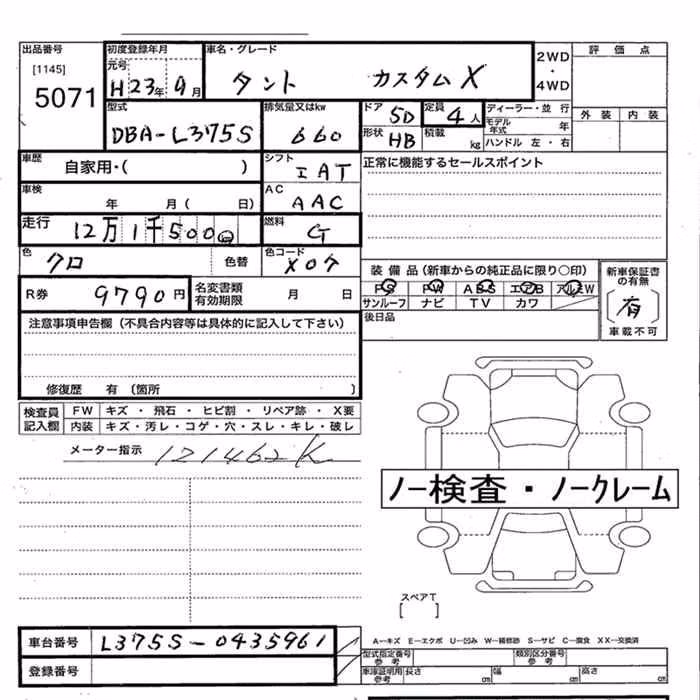 出品番号 初度登録年月 車名・グレード 評価点
[1145] 元号 2WD
5071 H23年9月 タント カスタムX ・
4WD
型式 排気量又はkw ドア 5D 定員 4人 ディーラー・並行 外装 内装
DBA-L375S 660 形状 HB 積載 kg モデル年式 年
ハンドル 左・右
車歴 自家用・( ) シフト IAT 正常に機能するセールスポイント
車検 年 月( 日) AC AAC
走行 12万1千500㎞ 燃料 G
色 クロ 色替 色コード X07
装備品(新車からの純正品に限り○印) 新車保証書の有無
PS PW ABS エアB アルミW 有
サンルーフ ナビ TV カワ 車載不可
R券 9790円 名変書類有効期限 月 日
後日品
注意事項申告欄(不具合内容等は具体的に記入して下さい)
修復歴 有(箇所 )
検査員記入欄 FW キズ・飛石・ヒビ割・リペア跡・X要
内装 キズ・汚レ・コゲ・穴・スレ・キレ・破レ
メーター指示 121462K
ノー検査・ノークレーム
スペアT
[ ]
車台番号 L375S-0435961
A-キズ E-エクボ U-凹み W-補修跡 S-サビ C-腐食 XX-交換済
型式指定番号 参考 類別区分番号 参考
登録番号
車庫証明用 参考 長さ cm 幅 cm 高さ cm